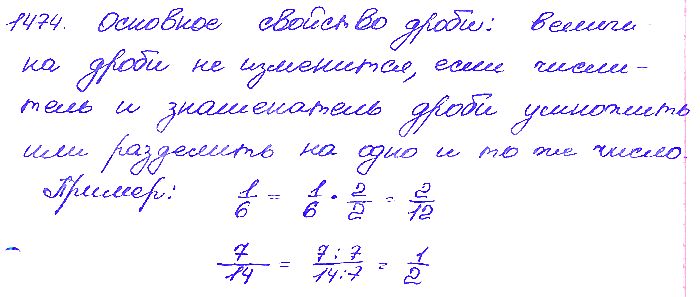 1474. Основное свойство дроби: величи
на дроби не изменится, если числи-
тель и знаменатель дроби умножить
или разделить на одно и то же число.
Пример: 1/6 = 1/6 · 2/2 = 2/12
7/14 = 7:7/14:7 = 1/2